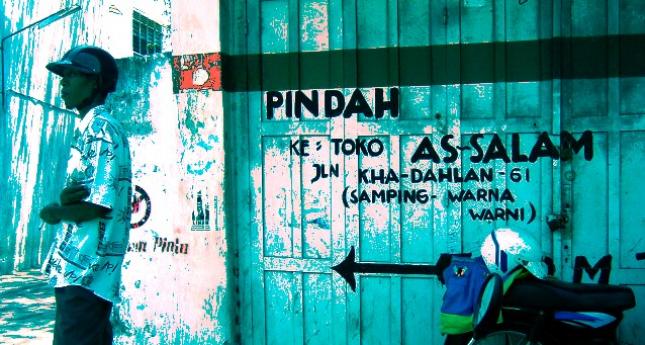 PINDAH
KE : TOKO AS-SALAM
JLN KHA-DAHLAN-61
(SAMPING-WARNA
WARNI)
Pintu
M